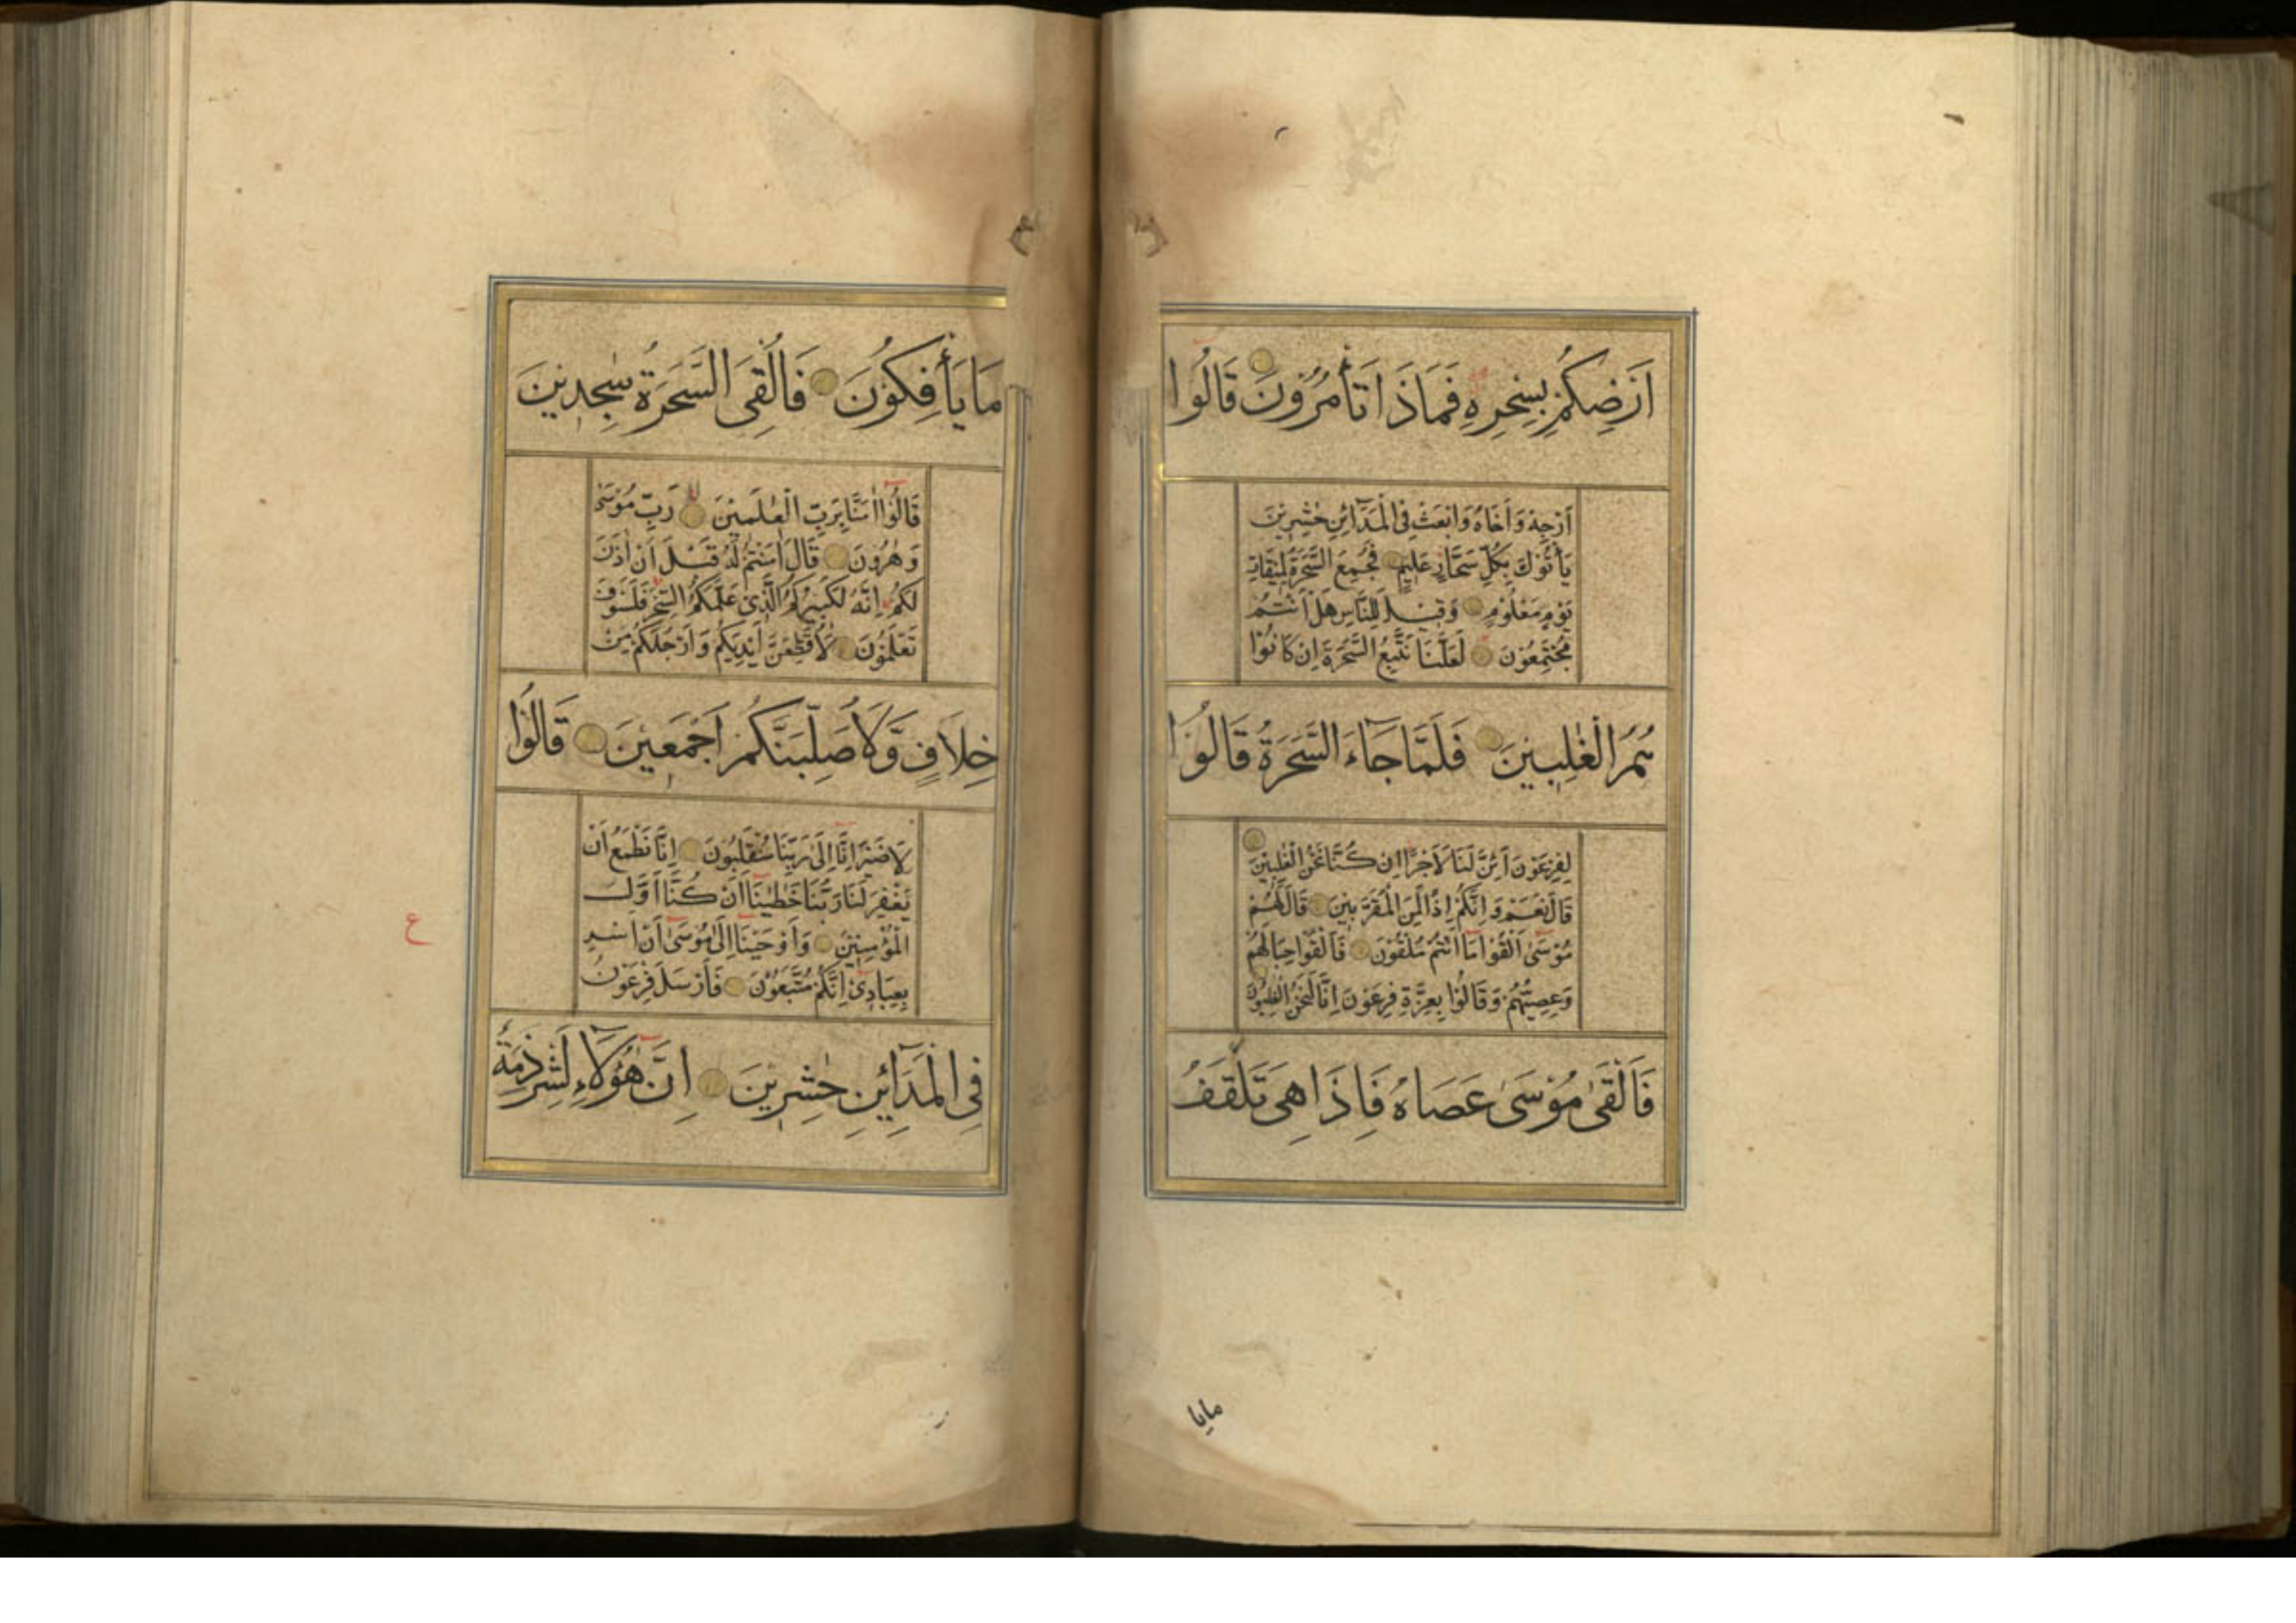 اَرْضِكُمْ بِسِحْرِهٖ فَمَاذَا تَأْمُرُوْنَ قَالُوْا
اَرْجِهْ وَاَخَاهُ وَابْعَثْ فِى الْمَدَآئِنِ حٰشِرِيْنَ
يَأْتُوْكَ بِكُلِّ سَحَّارٍ عَلِيْمٍ فَجُمِعَ السَّحَرَةُ لِمِيْقَاتِ
يَوْمٍ مَعْلُوْمٍ وَقِيْلَ لِلنَّاسِ هَلْ اَنْتُمْ
مُجْتَمِعُوْنَ لَعَلَّنَا نَتَّبِعُ السَّحَرَةَ اِنْ كَانُوْا
هُمُ الْغٰلِبِيْنَ فَلَمَّا جَآءَ السَّحَرَةُ قَالُوْا
لِفِرْعَوْنَ اَئِنَّ لَنَا لَاَجْرًا اِنْ كُنَّا نَحْنُ الْغٰلِبِيْنَ
قَالَ نَعَمْ وَاِنَّكُمْ اِذًا لَمِنَ الْمُقَرَّبِيْنَ قَالَ لَهُمْ
مُوْسٰى اَلْقُوْا مَا اَنْتُمْ مُلْقُوْنَ فَاَلْقَوْا حِبَالَهُمْ
وَعِصِيَّهُمْ وَقَالُوْا بِعِزَّةِ فِرْعَوْنَ اِنَّا لَنَحْنُ الْغٰلِبُوْنَ
فَاَلْقٰى مُوْسٰى عَصَاهُ فَاِذَا هِىَ تَلْقَفُ
مايا
مَا يَأْفِكُوْنَ فَاُلْقِىَ السَّحَرَةُ سٰجِدِيْنَ
قَالُوْا اٰمَنَّا بِرَبِّ الْعٰلَمِيْنَ رَبِّ مُوْسٰى
وَهٰرُوْنَ قَالَ اٰمَنْتُمْ لَهُ قَبْلَ اَنْ اٰذَنَ
لَكُمْ اِنَّهُ لَكَبِيْرُكُمُ الَّذِىْ عَلَّمَكُمُ السِّحْرَ فَلَسَوْفَ
تَعْلَمُوْنَ لَاُقَطِّعَنَّ اَيْدِيَكُمْ وَاَرْجُلَكُمْ مِنْ
خِلَافٍ وَّلَاُصَلِّبَنَّكُمْ اَجْمَعِيْنَ قَالُوْا
لَا ضَيْرَ اِنَّا اِلٰى رَبِّنَا مُنْقَلِبُوْنَ اِنَّا نَطْمَعُ اَنْ
يَغْفِرَ لَنَا رَبُّنَا خَطٰيٰنَا اَنْ كُنَّا اَوَّلَ
الْمُؤْمِنِيْنَ وَاَوْحَيْنَا اِلٰى مُوْسٰى اَنْ اَسْرِ
بِعِبَادِىْ اِنَّكُمْ مُتَّبَعُوْنَ فَاَرْسَلَ فِرْعَوْنُ
فِى الْمَدَآئِنِ حٰشِرِيْنَ اِنَّ هٰؤُلَآءِ لَشِرْذِمَةٌ
ع